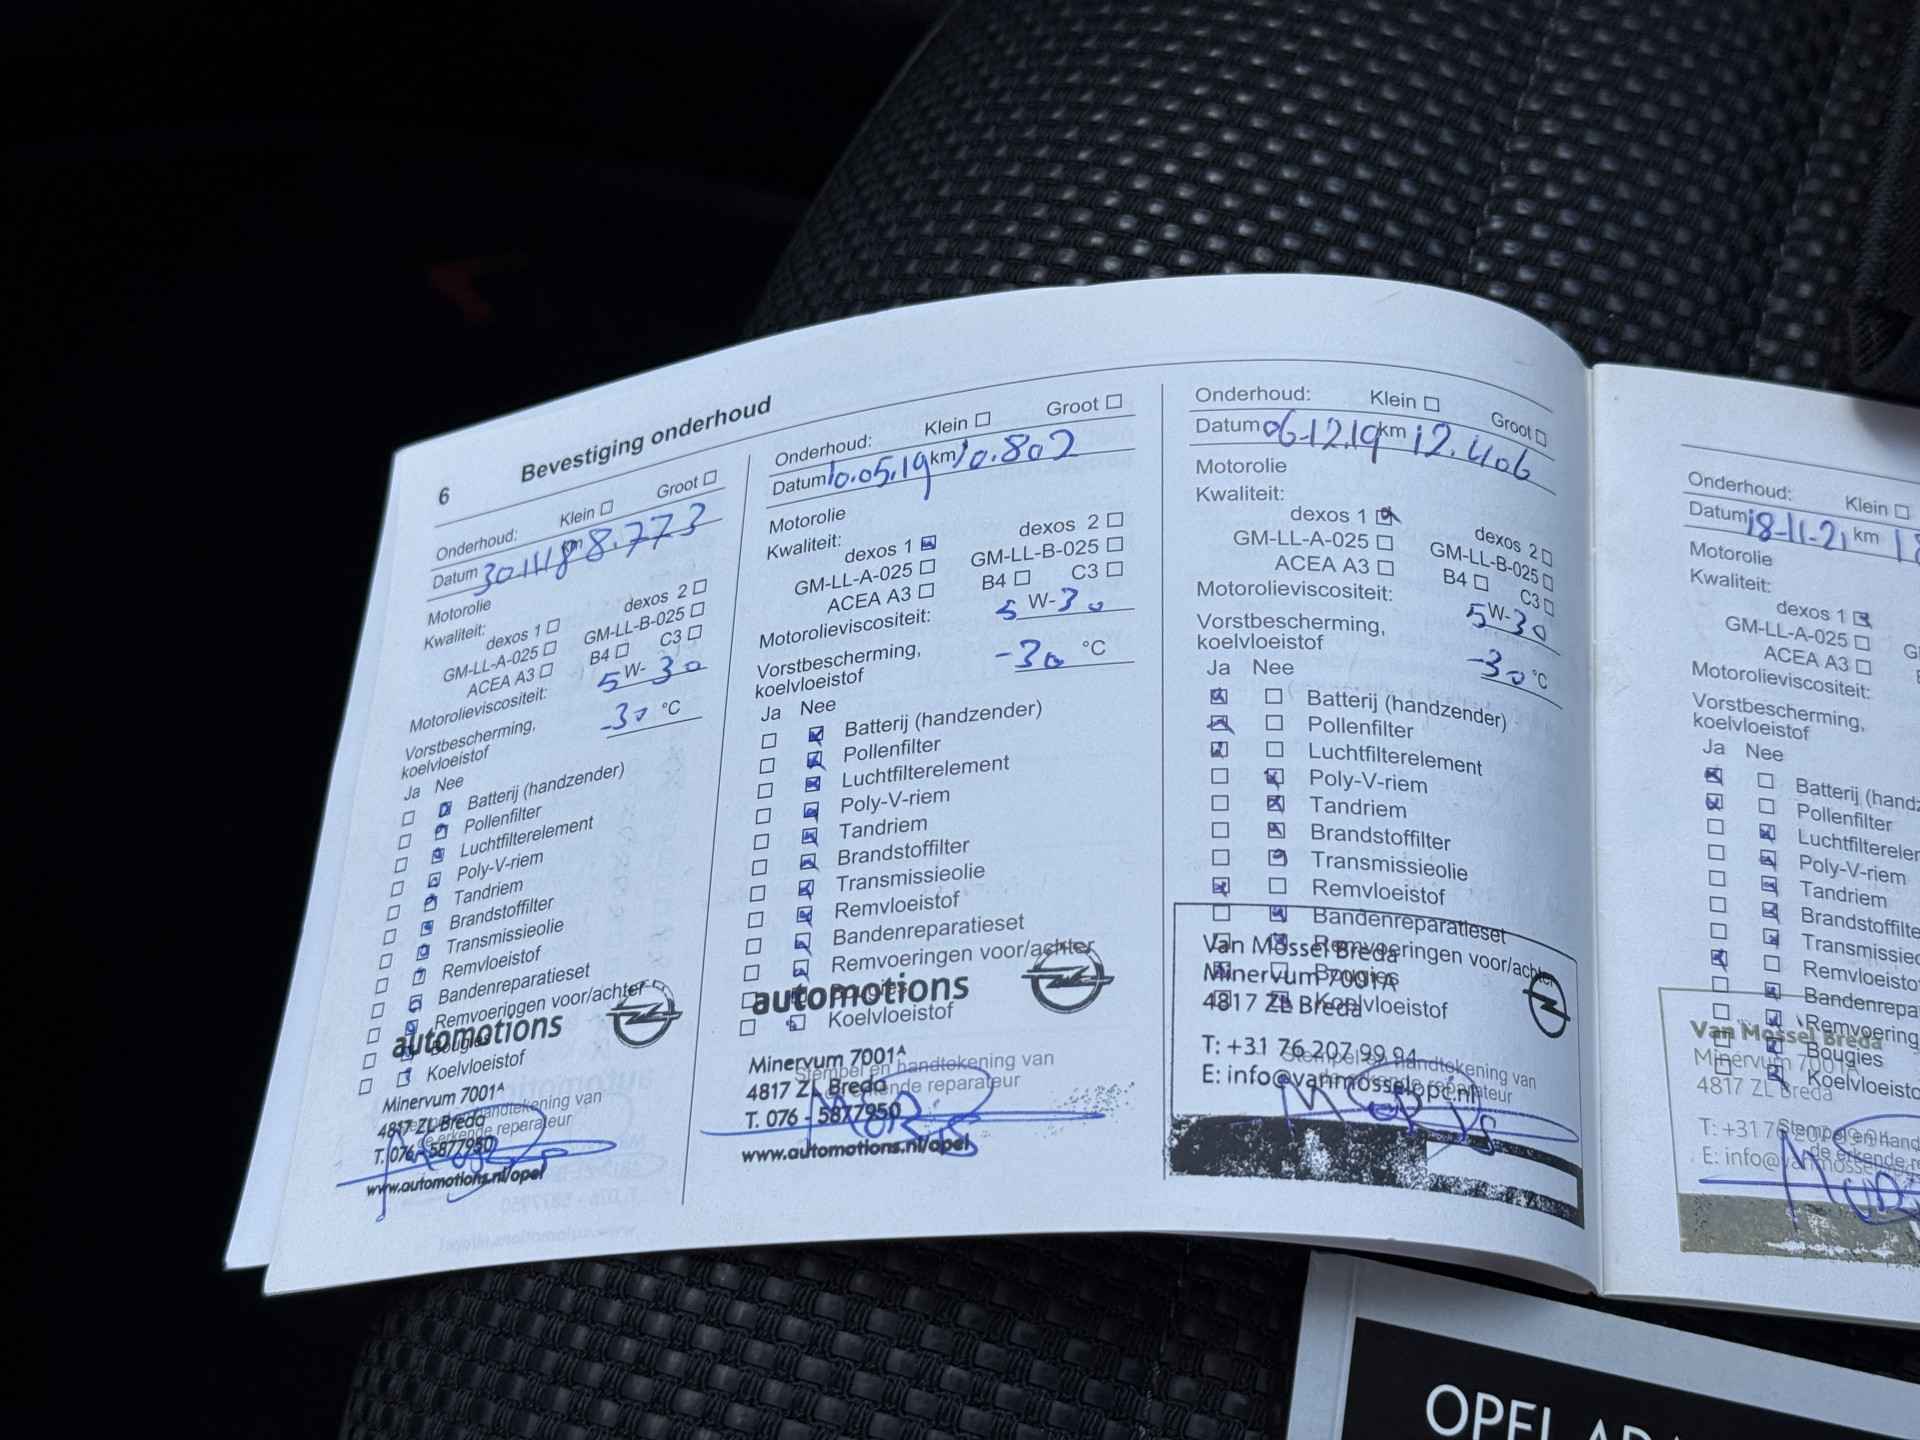 6
Bevestiging onderhoud
Onderhoud: Klein ☐ Groot ☐
Datum 30.11.18 km 8.773
Motorolie
Kwaliteit:
dexos 1 ☐ dexos 2 ☐
GM-LL-A-025 ☐ GM-LL-B-025 ☐
ACEA A3 ☐ B4 ☐ C3 ☐
Motorolieviscositeit: 5 W-30
Vorstbescherming,
koelvloeistof -30 °C
Ja Nee
☐ ☒ Batterij (handzender)
☐ ☒ Pollenfilter
☐ ☒ Luchtfilterelement
☐ ☒ Poly-V-riem
☐ ☒ Tandriem
☐ ☒ Brandstoffilter
☐ ☒ Transmissieolie
☐ ☒ Remvloeistof
☐ ☒ Bandenreparatieset
☐ ☒ Remvoeringen voor/achter
☐ ☒ Bougies
☐ ☒ Koelvloeistof
automotions
Minervum 7001A
4817 ZL Breda
T. 076 - 5877950
www.automotions.nl/opel
Stempel en handtekening van
de erkende reparateur
Onderhoud: Klein ☐ Groot ☐
Datum 10.05.19 km 10.802
Motorolie
Kwaliteit:
dexos 1 ☒ dexos 2 ☐
GM-LL-A-025 ☐ GM-LL-B-025 ☐
ACEA A3 ☐ B4 ☐ C3 ☐
Motorolieviscositeit: 5 W-30
Vorstbescherming,
koelvloeistof -30 °C
Ja Nee
☐ ☒ Batterij (handzender)
☐ ☒ Pollenfilter
☐ ☒ Luchtfilterelement
☐ ☒ Poly-V-riem
☐ ☒ Tandriem
☐ ☒ Brandstoffilter
☐ ☒ Transmissieolie
☐ ☒ Remvloeistof
☐ ☒ Bandenreparatieset
☐ ☒ Remvoeringen voor/achter
☐ ☒ Bougies
☐ ☒ Koelvloeistof
automotions
Minervum 7001A
4817 ZL Breda
T. 076 - 5877950
www.automotions.nl/opel
Stempel en handtekening van
de erkende reparateur
Onderhoud: Klein ☐ Groot ☐
Datum 06-12.19 km 12.406
Motorolie
Kwaliteit:
dexos 1 ☒ dexos 2 ☐
GM-LL-A-025 ☐ GM-LL-B-025 ☐
ACEA A3 ☐ B4 ☐ C3 ☐
Motorolieviscositeit: 5 W-30
Vorstbescherming,
koelvloeistof -30 °C
Ja Nee
☒ ☐ Batterij (handzender)
☒ ☐ Pollenfilter
☒ ☐ Luchtfilterelement
☐ ☒ Poly-V-riem
☐ ☒ Tandriem
☐ ☒ Brandstoffilter
☐ ☒ Transmissieolie
☒ ☐ Remvloeistof
☐ ☒ Bandenreparatieset
☐ ☒ Remvoeringen voor/achter
☒ ☐ Bougies
Koelvloeistof
Van Mossel Breda
Minervum 7001A
4817 ZL Breda
T: +31 76 207 99 94
E: info@vanmosselopc.nl
Stempel en handtekening van
de erkende reparateur
Onderhoud: Klein ☐
Datum 18-11-21 km
Motorolie
Kwaliteit:
dexos 1 ☒
GM-LL-A-025 ☐
ACEA A3 ☐
Motorolieviscositeit:
Vorstbescherming,
koelvloeistof
Ja Nee
☒ ☐ Batterij
☒ ☐ Pollenfilter
☐ ☒
☐ ☒ Poly-V-riem
☐ ☒ Tandriem
☐ ☒
☐ ☒
☒ ☐
☐ ☒
☐ ☒
☐ ☒ Bougies
☐ ☒
Van Mossel Breda
Minervum 7001A
4817 ZL Breda
Stempel en
OPEL